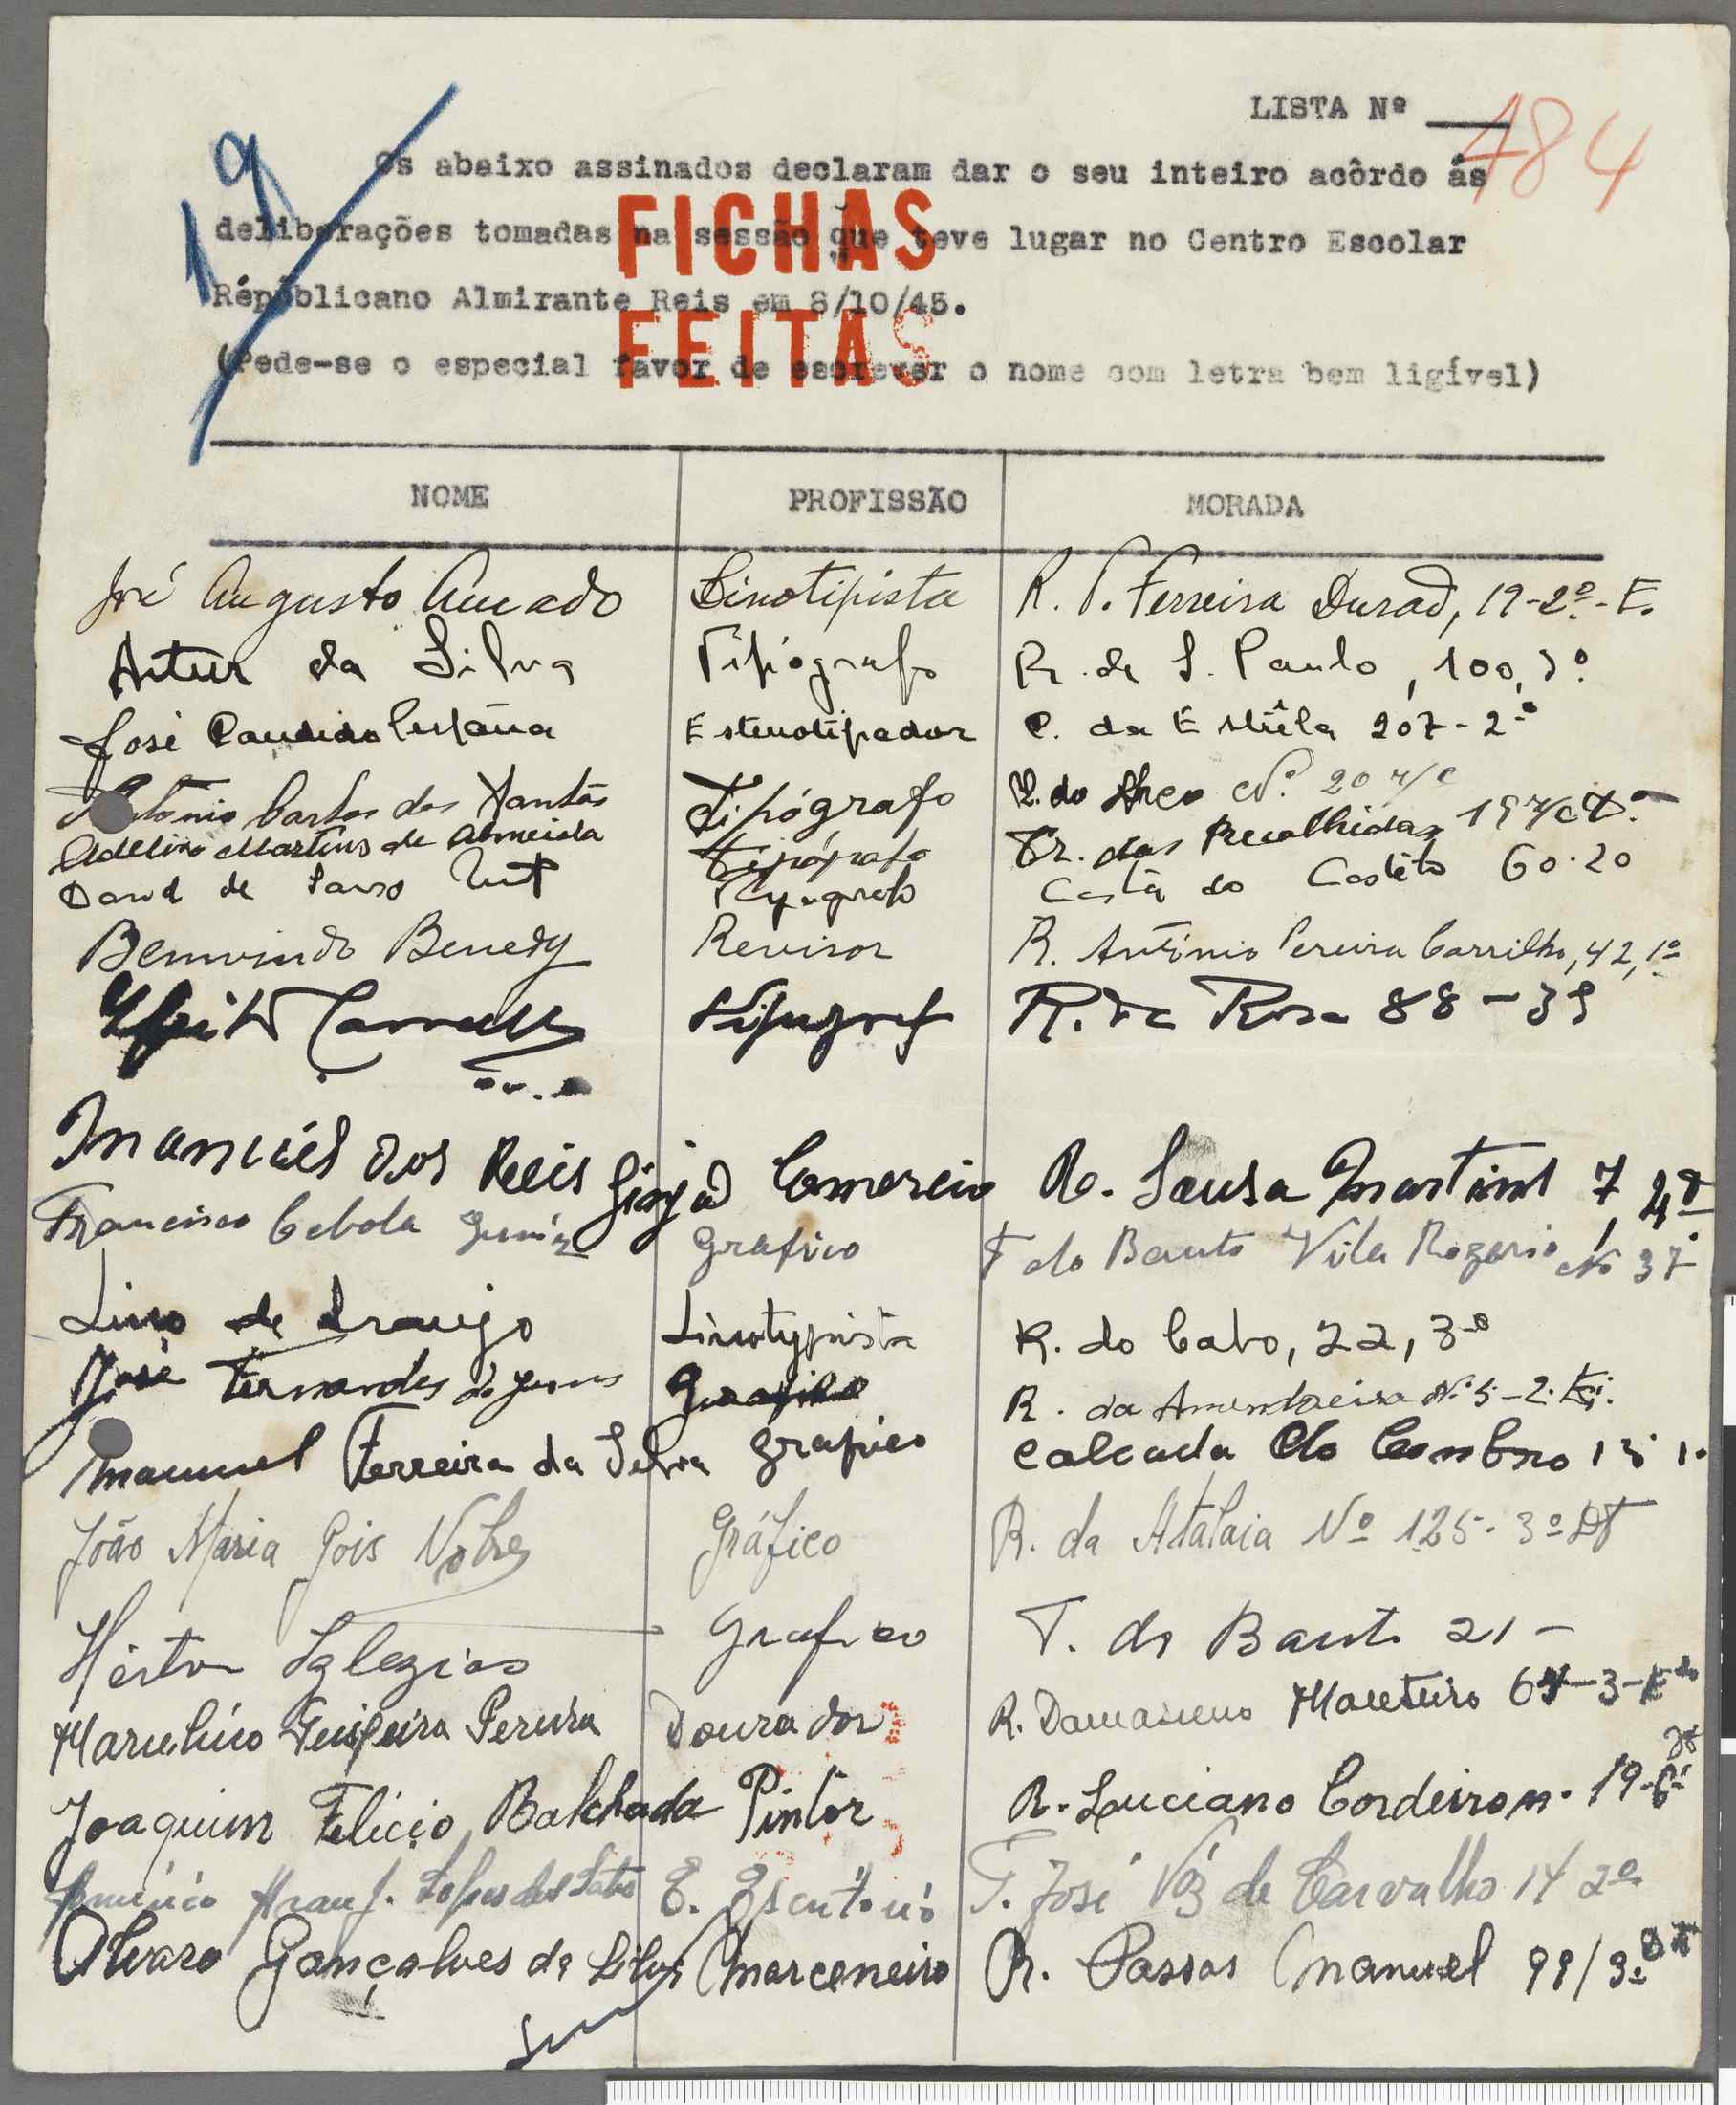 LISTA Nº 484
19
Os abaixo assinados declaram dar o seu inteiro acôrdo ás
deliberações tomadas na sessão que teve lugar no Centro Escolar
FICHAS
Républicano Almirante Reis em 8/10/45.
FEITAS
(Pede-se o especial favor de escrever o nome com letra bem ligível)
NOME PROFISSÃO MORADA
José Augusto Amado Linotipista R. P. Ferreira Durão, 19-2º-E.
Artur da Silva Tipógrafo R. de S. Paulo, 100, 3º
José Candido Estenotipador C. da Estrêla 207-2º
António Carlos dos Santos Tipógrafo do Arco Nº 20 r/c
Adelino Martins de Almeida Tipógrafo Tr. das Recolhidas 19 r/c
David de Typografo Costa do Castelo 60-20
Bemvindo Benedy Revisor R. António Pereira Carrilho, 42, 1º
R. da Rosa 88-3º
Manuel dos Reis Comercio R. Sousa Martins 7, 4º
Francisco Cebola Junior Grafico T do Bauto Vila Rogerio Nº 37
Lino de Araujo Linotypista R. do Cabo, 22, 3º
José Fernandes de Jesus Grafico R. da Amendoeira Nº 5-2.
Manuel Ferreira da Silva grafico Calçada do Combro 13 1º
João Maria Gois Nobre Gráfico R. da Atalaia Nº 125-3º Dt
Iglezias Grafico T. do 21-
Marcelino Teixeira Pereira Dourador R. Damasceno Monteiro
Joaquim Felicio Balchada Pintor R. Luciano Cordeiro n. 19
Lopes E. Escritorio T. José Vaz de Carvalho 14 2º
Alvaro Gonçalves da Silva Marceneiro R. Passos Manuel 99/3º Dt